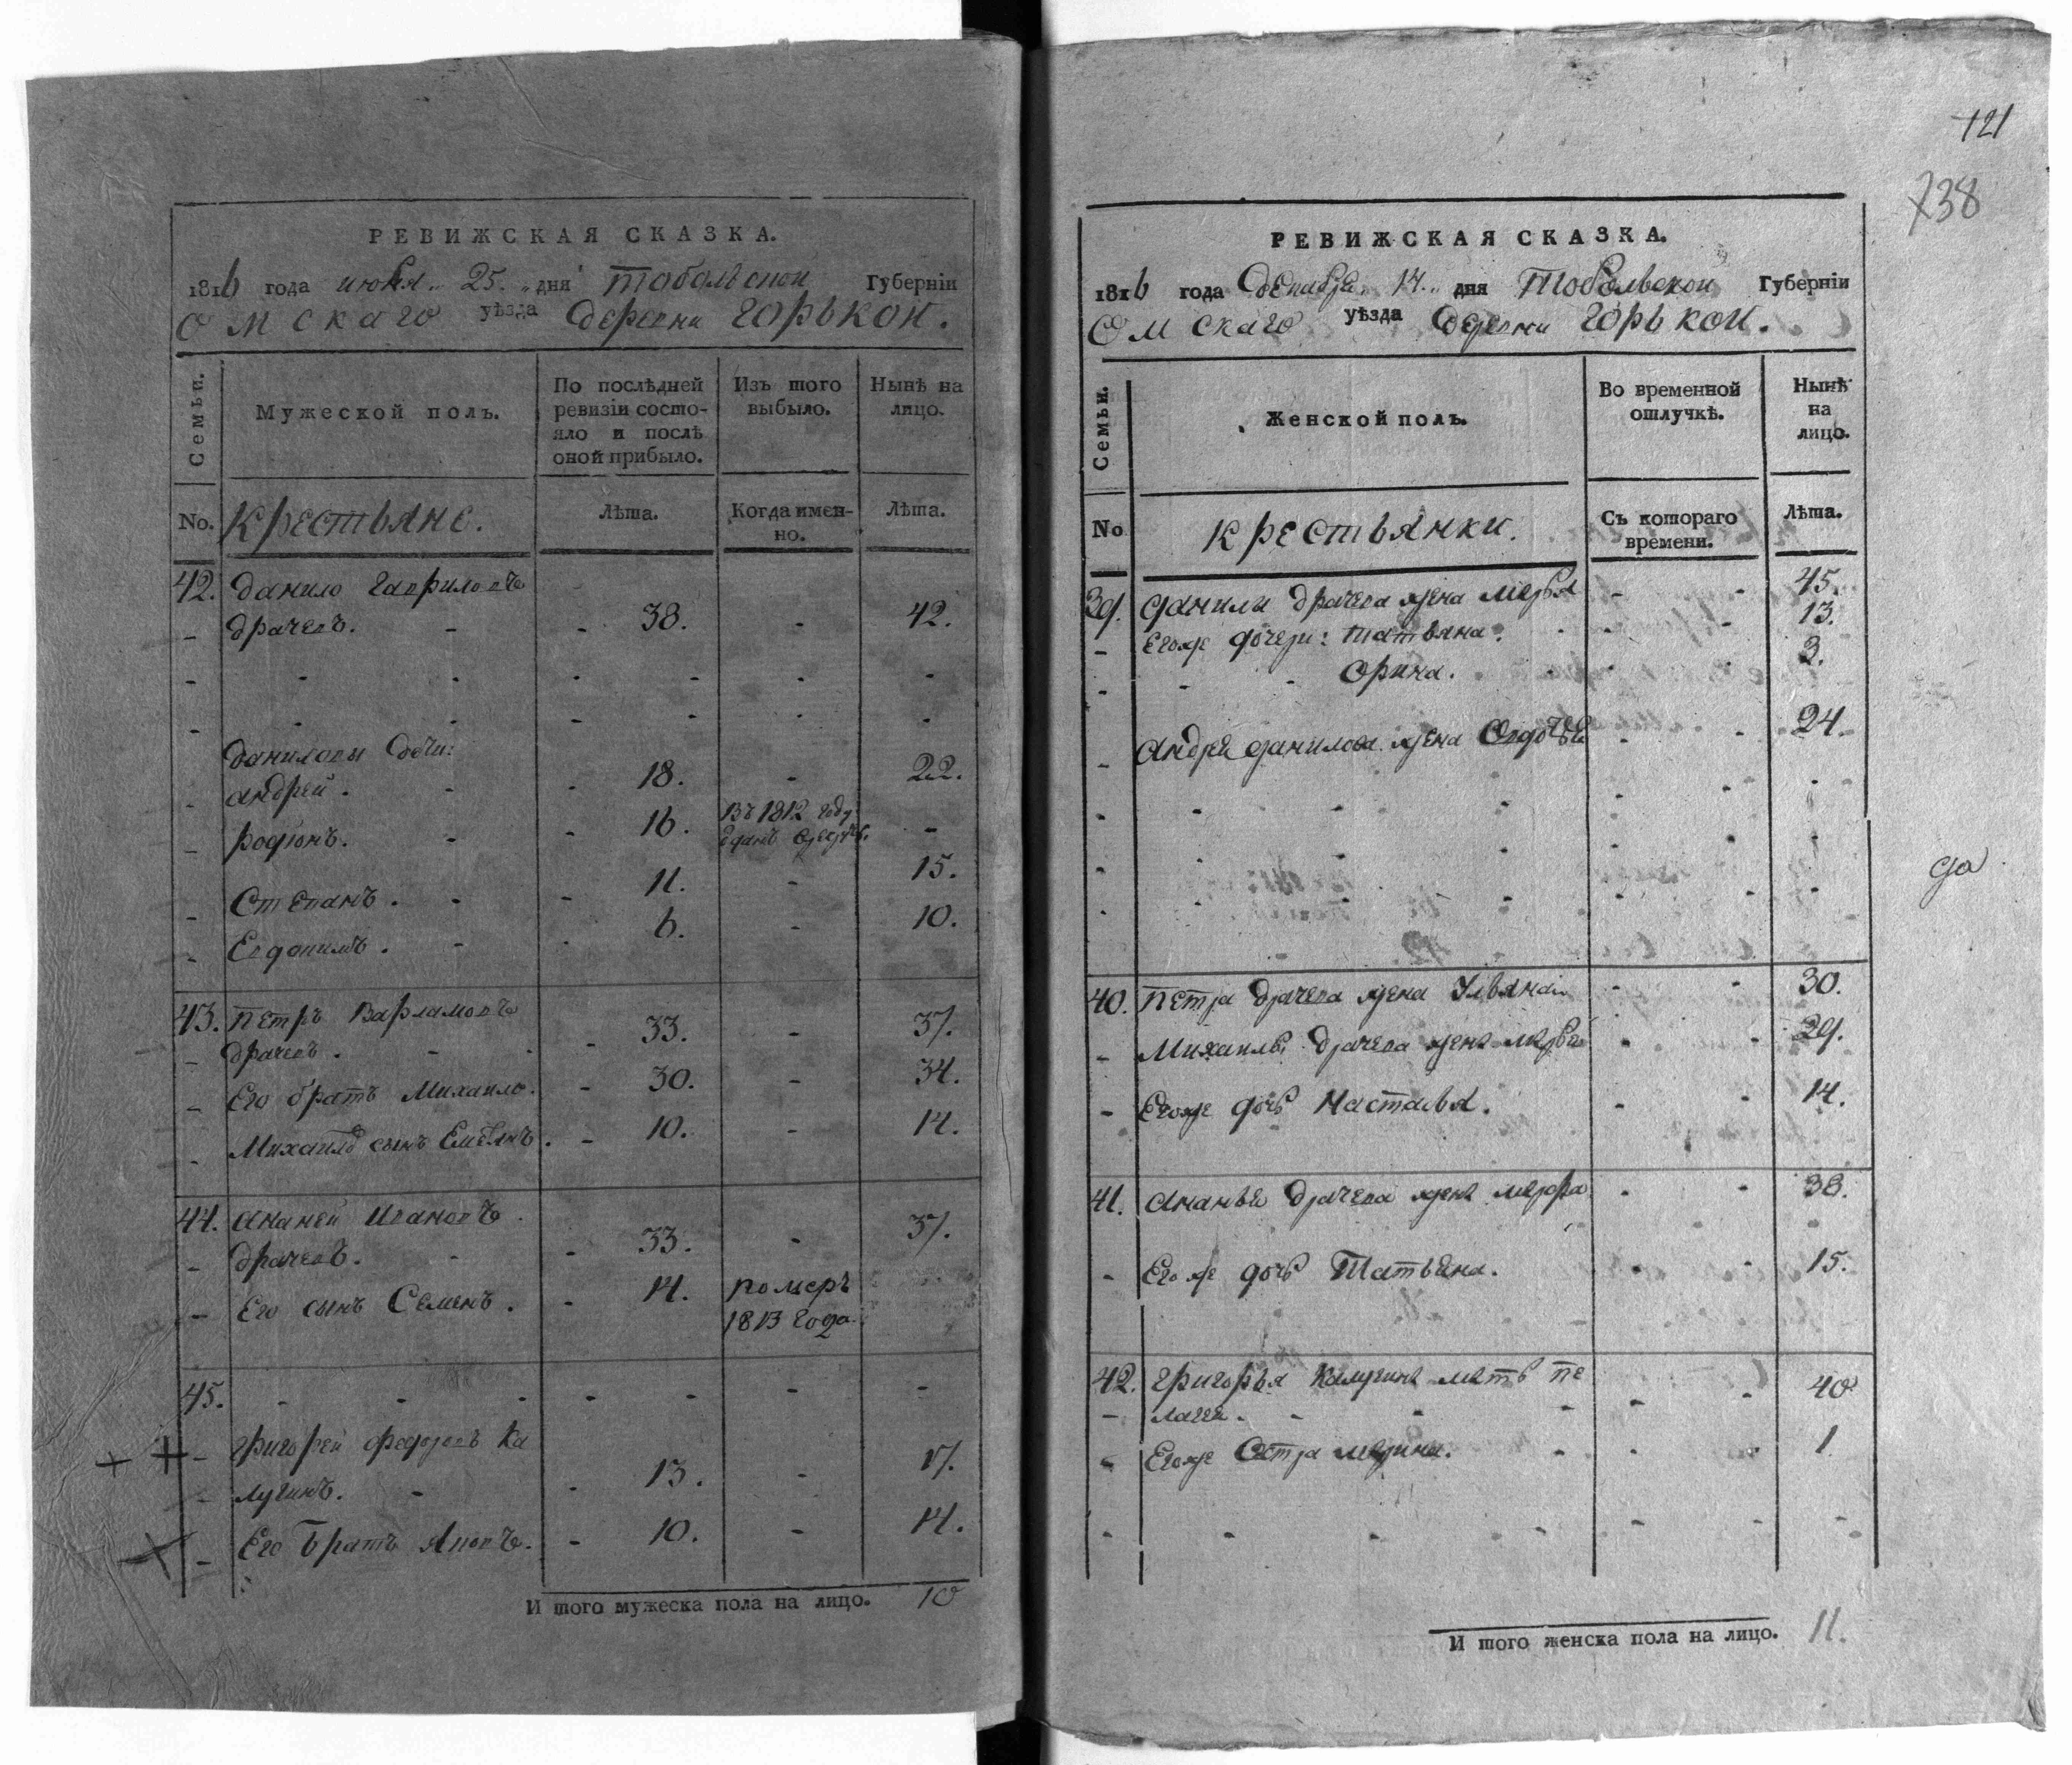 РЕВИЖСКАЯ СКАЗКА.
1816 года июня 25. дня Тобольской Губернїи
Омскаго уѣзда деревни Горькои.
Семьи.
Мужеской полъ.
По послѣдней ревизїи состояло и послѣ оной прибыло.
Изъ того выбыло.
Нынѣ на лицо.
No.
Крестьяне.
Лѣта.
Когда именно.
Лѣта.
42. Данило Гавриловъ
Драчевъ. 38. 42.
Даниловы дети:
Андрей. 18. 22.
Родїонъ. 16. Въ 1812 году
Степанъ. 11. 15.
6. 10.
43. Петръ Варламовъ
Драчевъ. 33. 37.
Его братъ Михаило. 30. 34.
Михаилы сынъ Емелянъ. 10. 14.
44. Ананеи Ивановъ
Драчевъ. 33. 37.
Его сынъ Семенъ. 14. померъ
1813 года.
45.
Григорей Федоровъ Ка
лугинъ. 13. 17.
Его братъ Яковъ. 10. 14.
И того мужеска пола на лицо. 10
121
738
РЕВИЖСКАЯ СКАЗКА.
1816 года Декабря 14. дня Тобольскои Губернїи
Омскаго уѣзда деревни Горькои.
Семьи.
Женской полъ.
Во временной отлучкѣ.
Нынѣ на лицо.
No
Крестьянки.
Съ котораго времени.
Лѣта.
39. Данилы Драчева жена Марья 45.
Егоже дочери: Татьяна. 13.
Орина. 3.
Андрея Данилова жена Овдотья 24.
да
40. Петра Драчева жена Ульяна 30.
Михаилы Драчева жена Марья 29.
Егоже дочь Настасья. 14.
41. Ананьи Драчева жена Марфа 38.
Его же дочь Татьяна. 15.
42. Григорья Калугина мать Пе
лагея. 40
Егоже сестра Марина. 1
И того женска пола на лицо. 11.